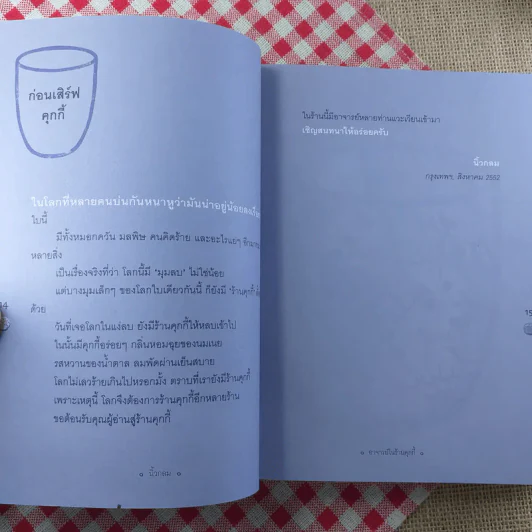 ก่อนเสิร์ฟ
คุกกี้
ในโลกที่หลายคนบ่นกันหนาหูว่ามันน่าอยู่น้อยลง
ใบนี้
มีทั้งหมอกควัน มลพิษ คนคิดร้าย และอะไรแย่ๆ อีกมาก
หลายสิ่ง
เป็นเรื่องจริงที่ว่า โลกนี้มี 'มุมลบ' ไม่ใช่น้อย
แต่บางมุมเล็กๆ ของโลกใบเดียวกันนี้ ก็ยังมี 'ร้านคุกกี้'
ด้วย
วันที่เจอโลกในแง่ลบ ยังมีร้านคุกกี้ให้หลบเข้าไป
ในนั้นมีคุกกี้อร่อยๆ กลิ่นหอมฉุยของนมเนย
รสหวานของน้ำตาล ลมพัดผ่านเย็นสบาย
โลกไม่เลวร้ายเกินไปหรอกมั้ง ตราบที่เรายังมีร้านคุกกี้
เพราะเหตุนี้ โลกจึงต้องการร้านคุกกี้อีกหลายร้าน
ขอต้อนรับคุณผู้อ่านสู่ร้านคุกกี้
นิ้วกลม
ในร้านนี้มีอาจารย์หลายท่านแวะเวียนเข้ามา
เชิญสนทนาให้อร่อยครับ
นิ้วกลม
กรุงเทพฯ, สิงหาคม 2552
อาจารย์ในร้านคุกกี้